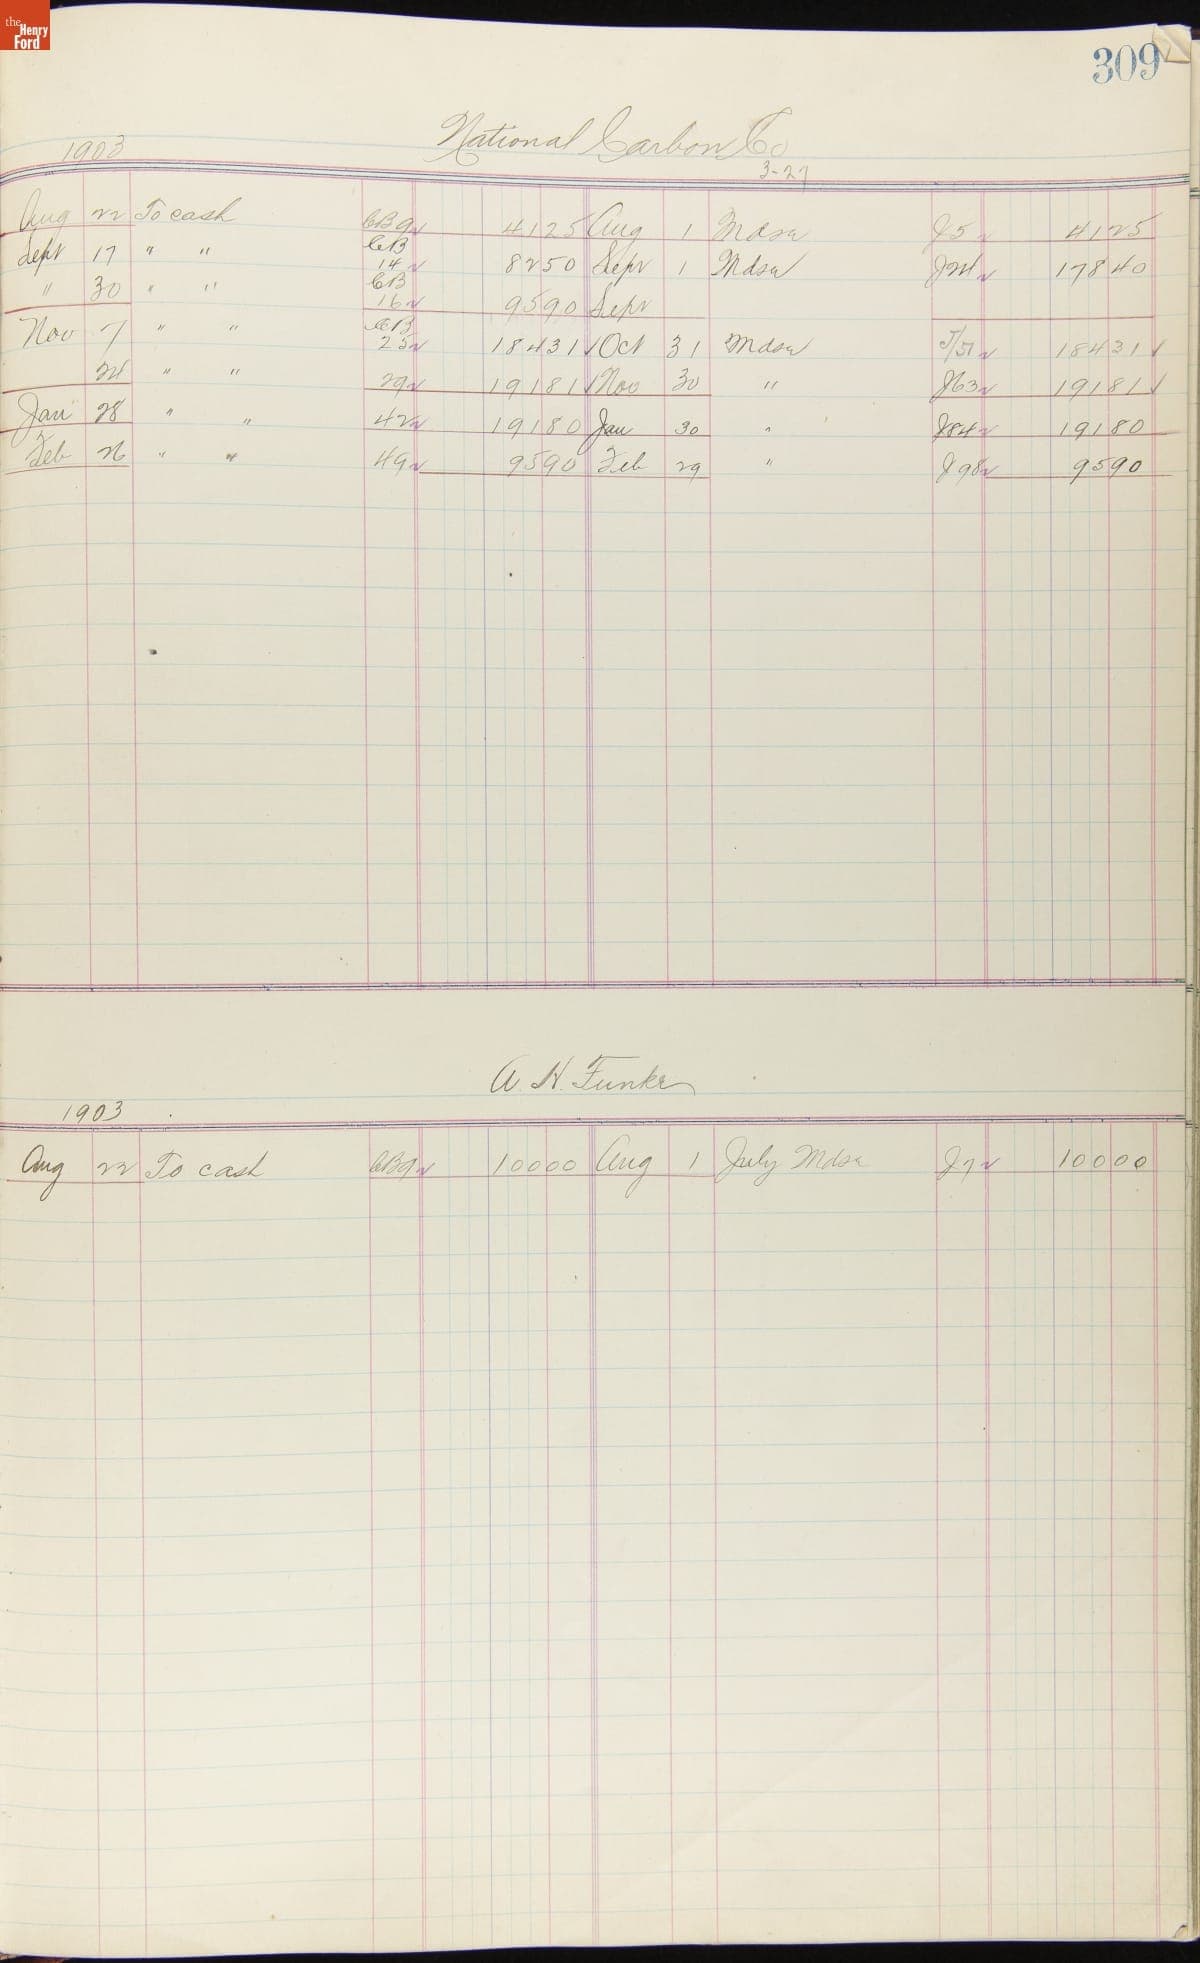 the
Henry
Ford
309
National Carbon Co
1903
3-27
Aug 22 To cash CB9 4125 Aug 1 Mdse J5 4125
Sept 17 " " CB 14 8250 Sept 1 Mdse J24 17840
" 30 " " CB 16 9590 Sept
Nov 7 " " CB 25 18431 ✓ Oct 31 Mdse J/51 18431 ✓
24 " " 29 19181 ✓ Nov 30 " J63 19181 ✓
Jan 28 " " 42 19180 Jan 30 " J84 19180
Feb 26 " " 49 9590 Feb 29 " J98 9590
A. H. Funke
1903
Aug 22 To cash CB9 10000 Aug 1 July Mdse J7 10000